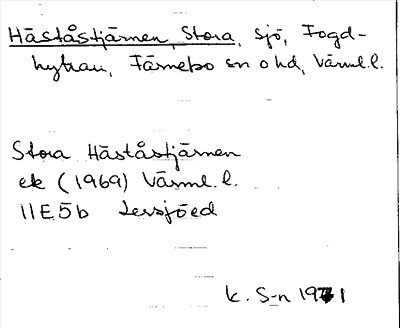 Häståstjärnen, Stora, sjö, Fogd-
hyttan, Färnebo sn o hd, Värml.l.
Stora Häståstjärnen
ek (1969) Värml. l.
11E5b Lersjöed
k. S-n 1971